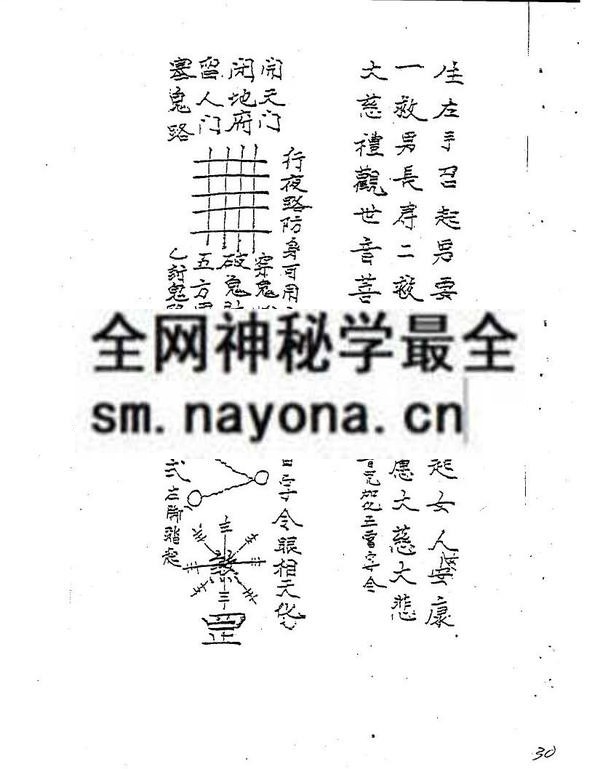 生左手召起男要
一救男長寿二救
大慈禮觀世音菩
起女人安康
愿大慈大悲
開天门
闭地府
留人门
塞鬼路
行夜路防身可用
穿鬼
破鬼
五方
封鬼路
全网神秘学最全
sm.nayona.cn
字令眼相天化
式左脚踏起
煞
罡
30